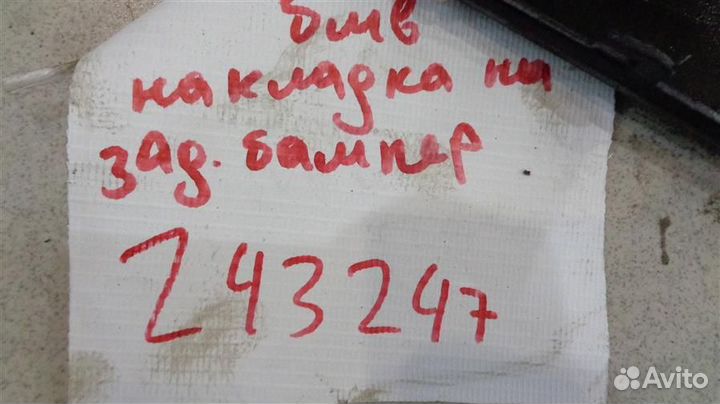 бмв
накладка на
зад. бампер
243247
Avito